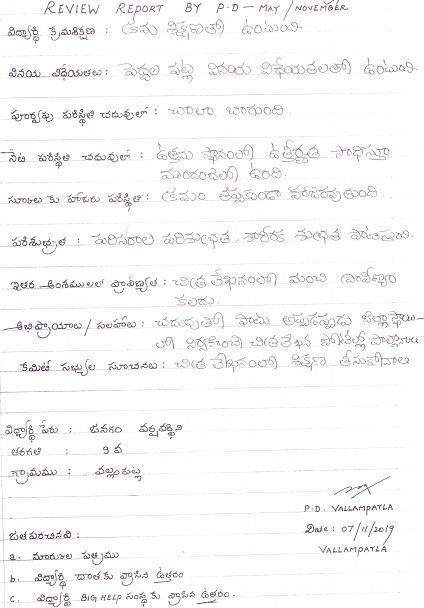 REVIEW REPORT BY P.D - MAY / NOVEMBER
విద్యార్థి క్రమశిక్షణ : క్రమ శిక్షణతో ఉంటుంది.
వినయ విధేయతలు : పెద్దల పట్ల వినయ విధేయతలతో ఉంటుంది.
పూర్వపు పరిస్థితి చదువులో : చాలా బాగుంది
నేటి పరిస్థితి చదువులో : ఉత్తమ స్థానంలో ఉత్తీర్ణత సాధిస్తూ
ముందంజలో ఉంది.
స్కూలు కు హాజరు పరిస్థితి : క్రమం తప్పకుండా హాజరవుతుంది.
పరిశుభ్రత : పరిసరాల పరిశుభ్రత, శారీరక శుభ్రత పాటిస్తుంది.
ఇతర అంశములలో ప్రావీణ్యత : చిత్ర లేఖనంలో మంచి ప్రావీణ్యం
కలదు.
అభిప్రాయాలు / సలహాలు : చదువుతో పాటు అప్పుడప్పుడు జిల్లా స్థాయి-
లో నిర్వహించే చిత్రలేఖన పోటీల్లో పాల్గొనాలి
కమిటి సభ్యుల సూచనలు : చిత్ర లేఖనంలో శిక్షణ తీసుకోవాలి
విద్యార్థి పేరు : జనగం వర్షవర్థిని
తరగతి : 9 వ
గ్రామము : వల్లంపట్ల
P.D. VALLAMPATLA
Date : 07/11/2019
VALLAMPATLA
జతపరచినవి :
a. మార్కుల పత్రము
b. విద్యార్థి దాతకు వ్రాసిన ఉత్తరం
c. విద్యార్థి BIG HELP సంస్థ కు వ్రాసిన ఉత్తరం.